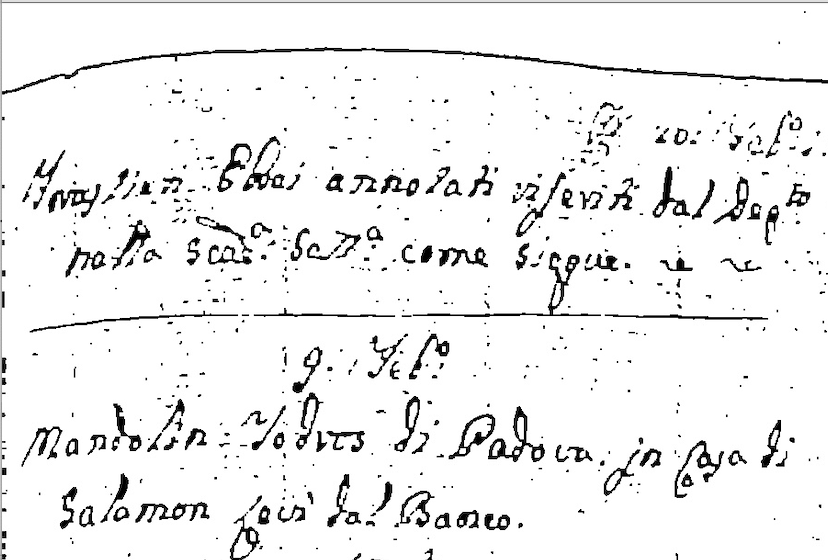 20: Feb.º
Forastieri Ebrei annotati riferiti dal Dep.to
nella scad.ª Sett.ª come siegue.
9. Feb.º
Mandolin Todros di Padova. in Casa di
Salamon Levi dal Banco.